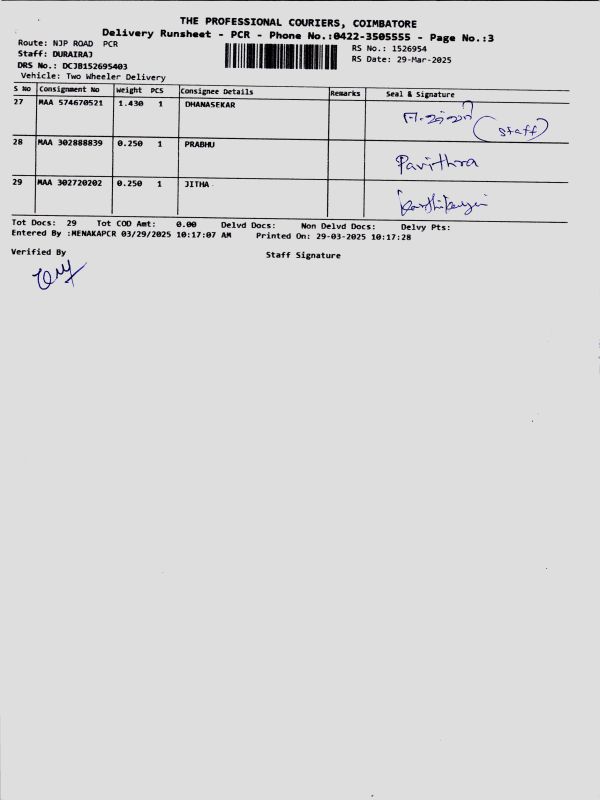 THE PROFESSIONAL COURIERS, COIMBATORE
Delivery Runsheet - PCR - Phone No.:0422-3505555 - Page No.:3
Route: NJP ROAD PCR
RS No.: 1526954
Staff: DURAIRAJ
RS Date: 29-Mar-2025
DRS No.: DCJB152695403
Vehicle: Two Wheeler Delivery
S No Consignment No Weight PCS Consignee Details Remarks Seal & Signature
27 MAA 574670521 1.430 1 DHANASEKAR
(staff)
28 MAA 302888839 0.250 1 PRABHU
Pavithra
29 MAA 302720202 0.250 1 JITHA
Tot Docs: 29 Tot COD Amt: 0.00 Delvd Docs: Non Delvd Docs: Delvy Pts:
Entered By :MENAKAPCR 03/29/2025 10:17:07 AM Printed On: 29-03-2025 10:17:28
Verified By
Staff Signature